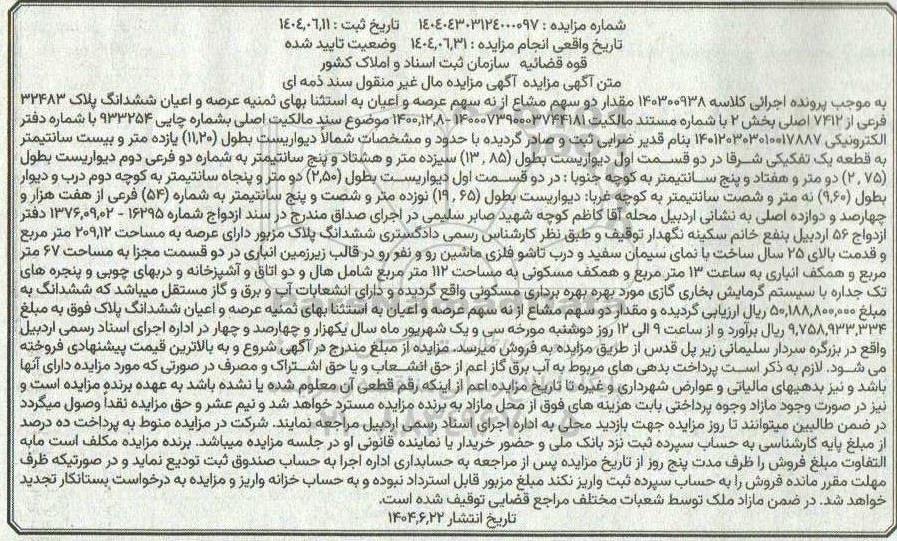 شماره مزایده : ۱۴۰۴۰۴۳۰۳۱۲۴۰۰۰۰۹۷ تاریخ ثبت : ۱۴۰۴,۰۶,۱۱
تاریخ واقعی انجام مزایده : ۱۴۰۴,۰۶,۳۱ وضعیت تایید شده
قوه قضائیه سازمان ثبت اسناد و املاک کشور
متن آگهی مزایده آگهی مزایده مال غیر منقول سند ذمه ای
به موجب پرونده اجرائی کلاسه ۱۴۰۳۰۰۹۳۸ مقدار دو سهم مشاع از نه سهم عرصه و اعیان به استثنا بهای ثمنیه عرصه و اعیان ششدانگ پلاک ۳۲۴۸۳
فرعی از ۷۴۱۲ اصلی بخش ۲ با شماره مستند مالکیت ۱۴۰۰۰۷۳۹۰۰۰۲۷۴۴۱۸۱ -۱۴۰۰,۱۲,۸ موضوع سند مالکیت اصلی بشماره چاپی ۹۳۳۲۵۴ با شماره دفتر
الکترونیکی ۱۴۰۱۲۰۳۰۳۰۱۰۰۱۷۸۸۷ بنام قدیر ضرابی ثبت و صادر گردیده با حدود و مشخصات شمالاً دیواریست بطول (۱۱,۲۰) یازده متر و بیست سانتیمتر
به قطعه یک تفکیکی شرقا در دو قسمت اول دیواریست بطول (۸۵ , ۱۳) سیزده متر و هشتاد و پنج سانتیمتر به شماره دو فرعی دوم دیواریست بطول
(۷۵ , ۲) دو متر و هفتاد و پنج سـانتیمتر به کوچه جنوبا : در دو قسـمت اول دیواریـست بطول (۲,۵۰) دو متر و پنجاه سانتیمتر به کوچه دوم درب و دیوار
بطول (۹,۶۰) نه متر و شصت سانتیمتر به کوچه غربا: دیواریست بطول (۶۵ , ۱۹) نوزده متر و شصت و پنج سانتیمتر به شماره (۵۴) فرعی از هفت هزار و
چهارصد و دوازده اصلی به نشانی اردبیل محله آقا کاظم کوچه شهید صابر سلیمی در اجرای صداق مندرج در سند ازدواج شماره ۱۶۲۹۵ - ۱۳۷۶,۰۹,۰۲ دفتر
ازدواج ۵۶ اردبیل بنفع خانم سکینه نگهدار توقیف و طبق نظر کارشناس رسمی دادگستری ششدانگ پلاک مزبور دارای عرصه به مساحت ۲۰۹,۱۲ متر مربع
و قدمت بالای ۲۵ سال ساخت با نمای سیمان سفید و درب تاشو فلزی ماشین رو و نفر رو در قالب زیرزمین انباری در دو قسمت مجزا به مساحت ۶۷ متر
مربع و همکف انباری به ساعت ۱۳ متر مربع و همکف مسکونی به مساحت ۱۱۲ متر مربع شامل هال و دو اتاق و آشپزخانه و دربهای چوبی و پنجره های
تک جداره با سیستم گرمایش بخاری گازی مورد بهره بهره برداری مسکونی واقع گردیده و دارای انشعابات آب و برق و گاز مستقل میباشد که ششدانگ به
مبلغ ۵۰,۱۸۸,۸۰۰,۰۰۰ ریال ارزیابی گردیده و مقدار دو سهم مشاع از نه سهم عرصه و اعیان به استثنا بهای ثمنیه عرصه و اعیان ششدانگ پلاک فوق به مبلغ
۹,۷۵۸,۹۳۳,۳۳۴ ریال برآورد و از ساعت ۹ الی ۱۲ روز دوشنبه مورخه سی و یک شهریور ماه سال یکهزار و چهارصد و چهار در اداره اجرای اسناد رسمی اردبیل
واقع در بزرگره سردار سلیمانی زیر پل قدس از طریق مزایده به فروش میرسد. مزایده از مبلغ مندرج در آگهی شروع و به بالاترین قیمت پیشنهادی فروخته
می شـود. لازم به ذکر است پرداخت بدهی های مربوط به آب برق گاز اعم از حق انشـعاب و یا حق اشـتراک و مصرف در صورتی که مورد مزایده دارای آنها
باشد و نیز بدهیهای مالیاتی و عوارض شهرداری و غیره تا تاریخ مزایده اعم از اینکه رقم قطعی آن معلوم شده یا نشده باشد به عهده برنده مزایده است و
نیز در صورت وجود مازاد وجوه پرداختی بابت هزینه های فوق از محل مازاد به برنده مزایده مسترد خواهد شد و نیم عشر و حق مزایده نقداً وصول میگردد
در ضمن طالبین میتوانند تا روز مزایده جهت بازدید محلی به اداره اجرای اسناد رسمی اردبیل مراجعه نمایند. شرکت در مزایده منوط به پرداخت ده درصد
از مبلغ پایه کارشناسی به حساب سپرده ثبت نزد بانک ملی و حضور خریدار یا نماینده قانونی او در جلسه مزایده میباشد. برنده مزایده مکلف است مابه
التفاوت مبلغ فروش را ظرف مدت پنج روز از تاریخ مزایده پس از مراجعه به حسابداری اداره اجرا به حساب صندوق ثبت تودیع نماید و در صورتیکه ظرف
مهلت مقرر مانده فروش را به حساب سپرده ثبت واریز نکند مبلغ مزبور قابل استرداد نبوده و به حساب خزانه واریز و مزایده به درخواست بستانکار تجدید
خواهد شد. در ضمن مازاد ملک توسط شعبات مختلف مراجع قضایی توقیف شده است.
تاریخ انتشار ۱۴۰۴,۶,۲۲